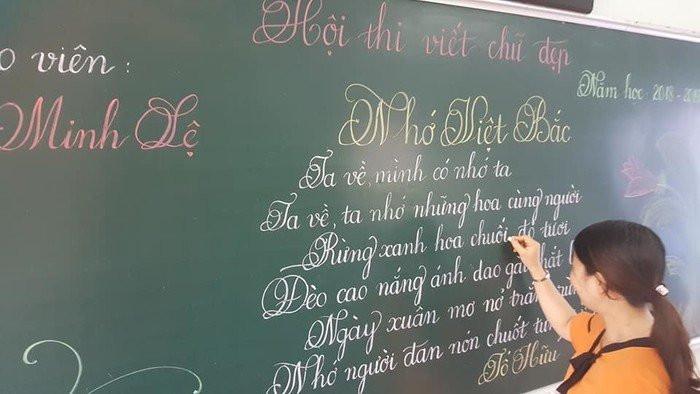 Hội thi viết chữ đẹp
Năm học : 2018 - 201
o viên :
Minh Lệ
Nhớ Việt Bắc
Ta về, mình có nhớ ta
Ta về, ta nhớ những hoa cùng người
Rừng xanh hoa chuối đỏ tươi
Đèo cao nắng ánh dao gài thắt l
Ngày xuân mơ nở trắng
Nhớ người đan nón chuốt
Tố Hữu